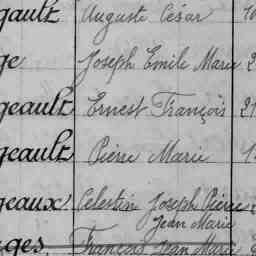 gault Auguste César 10
ge Joseph Emile Marie 2
geault Ernest François 21
geault Pierre Marie 1
geaux Celestin Joseph Pierre
Jean Marie
ges François Jean Marie